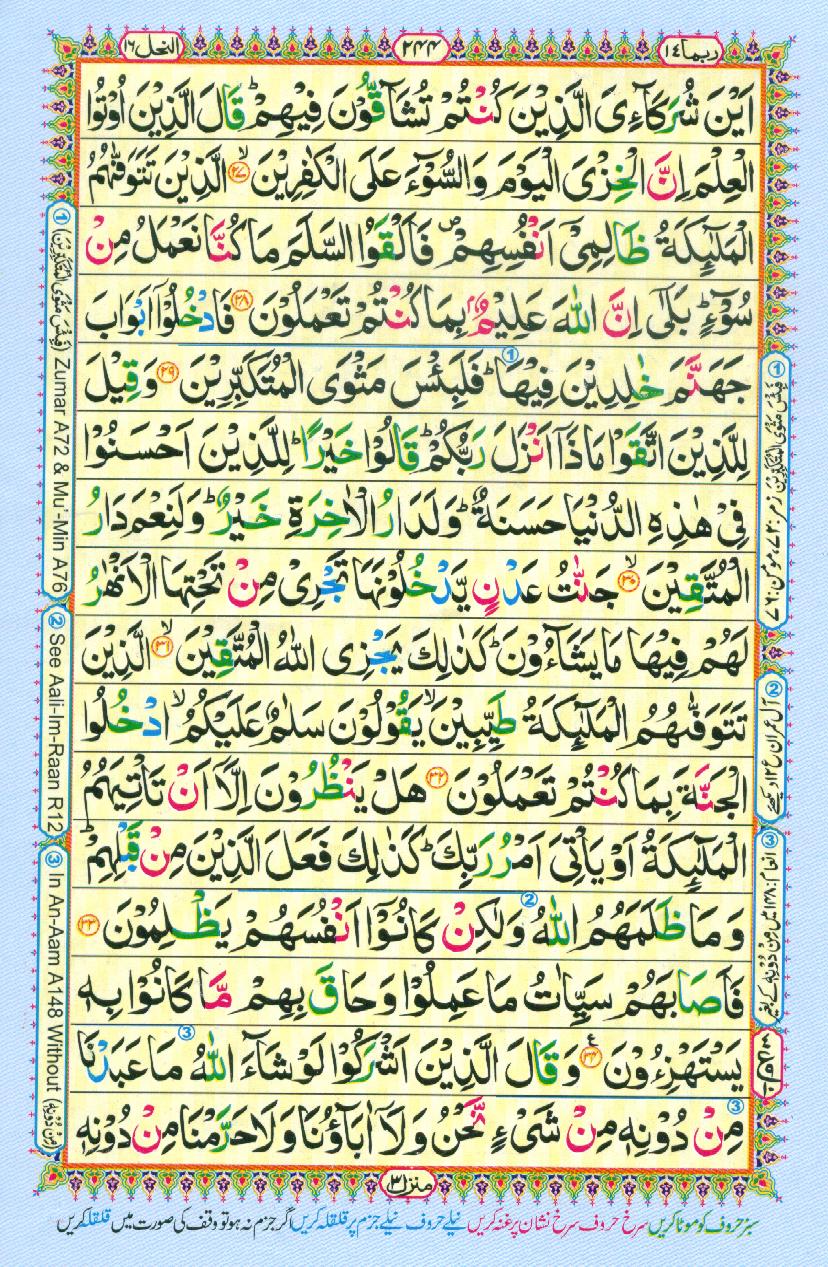 ربما ١٤
٢٤٤
النحل ١٦
اَيْنَ شُرَكَآءِىَ الَّذِيْنَ كُنْتُمْ تُشَآقُّوْنَ فِيْهِمْ ؕ قَالَ الَّذِيْنَ اُوْتُوا
الْعِلْمَ اِنَّ الْخِزْىَ الْيَوْمَ وَالسُّوْٓءَ عَلَى الْكٰفِرِيْنَ ۙ‏﴿۲۷﴾ الَّذِيْنَ تَتَوَفّٰٮهُمُ
الْمَلٰٓئِكَةُ ظَالِمِىْۤ اَنْفُسِهِمْ ۖ فَاَلْقَوُا السَّلَمَ مَا كُنَّا نَعْمَلُ مِنْ
سُوْٓءٍ ؕ بَلٰٓى اِنَّ اللّٰهَ عَلِيْمٌۢ بِمَا كُنْتُمْ تَعْمَلُوْنَ ﴿۲۸﴾ فَادْخُلُوْۤا اَبْوَابَ
جَهَنَّمَ خٰلِدِيْنَ فِيْهَا ؕ ① فَلَبِئْسَ مَثْوَى الْمُتَكَبِّرِيْنَ ﴿۲۹﴾ وَقِيْلَ
لِلَّذِيْنَ اتَّقَوْا مَاذَاۤ اَنْزَلَ رَبُّكُمْ ؕ قَالُوْا خَيْرًا ؕ لِلَّذِيْنَ اَحْسَنُوْا
فِىْ هٰذِهِ الدُّنْيَا حَسَنَةٌ ؕ وَلَدَارُ الْاٰخِرَةِ خَيْرٌ ؕ وَلَنِعْمَ دَارُ
الْمُتَّقِيْنَ ۙ‏﴿۳۰﴾ جَنّٰتُ عَدْنٍ يَّدْخُلُوْنَهَا تَجْرِىْ مِنْ تَحْتِهَا الْاَنْهٰرُ
لَهُمْ فِيْهَا مَا يَشَآءُوْنَ ؕ كَذٰلِكَ يَجْزِى اللّٰهُ الْمُتَّقِيْنَ ۙ‏﴿۳۱﴾ الَّذِيْنَ
تَتَوَفّٰٮهُمُ الْمَلٰٓئِكَةُ طَيِّبِيْنَ ۙ يَقُوْلُوْنَ سَلٰمٌ عَلَيْكُمُ ۙ ادْخُلُوا
الْجَنَّةَ بِمَا كُنْتُمْ تَعْمَلُوْنَ ﴿۳۲﴾ هَلْ يَنْظُرُوْنَ اِلَّاۤ اَنْ تَاْتِيَهُمُ
الْمَلٰٓئِكَةُ اَوْ يَاْتِىَ اَمْرُ رَبِّكَ ؕ كَذٰلِكَ فَعَلَ الَّذِيْنَ مِنْ قَبْلِهِمْ ؕ
وَمَا ظَلَمَهُمُ اللّٰهُ ② وَلٰكِنْ كَانُوْۤا اَنْفُسَهُمْ يَظْلِمُوْنَ ﴿۳۳﴾
فَاَصَابَهُمْ سَيِّاٰتُ مَا عَمِلُوْا وَحَاقَ بِهِمْ مَّا كَانُوْا بِهٖ
يَسْتَهْزِءُوْنَ ﴿۳۴﴾ ع وَقَالَ الَّذِيْنَ اَشْرَكُوْا لَوْ شَآءَ اللّٰهُ ③ مَا عَبَدْنَا
③ مِنْ دُوْنِهٖ مِنْ شَىْءٍ نَّحْنُ وَلَاۤ اٰبَآؤُنَا وَلَا حَرَّمْنَا مِنْ دُوْنِهٖ
① فَبِئْسَ مَثْوَى الْمُتَكَبِّرِيْنَ زمر: ۷۲، مومن: ۷۶
② آل عمران ع ۱۲ دیکھئے
③ انعام: ۱۴۸ میں مِنْ دُوْنِهٖ کے بغیر
① (فَبِئْسَ مَثْوَى الْمُتَكَبِّرِيْنَ) Zumar A72 & Mu'-Min A76
② See Aali-Im-Raan R12
③ In An-Aam A148 Without (مِنْ دُوْنِهٖ)
منزل ۳
سبز حروف کو موٹا کریں سرخ حروف سرخ نشان پر غنہ کریں نیلے حروف نیلے جزم پر قلقلہ کریں اگر جزم نہ ہو تو وقف کی صورت میں قلقلہ کریں